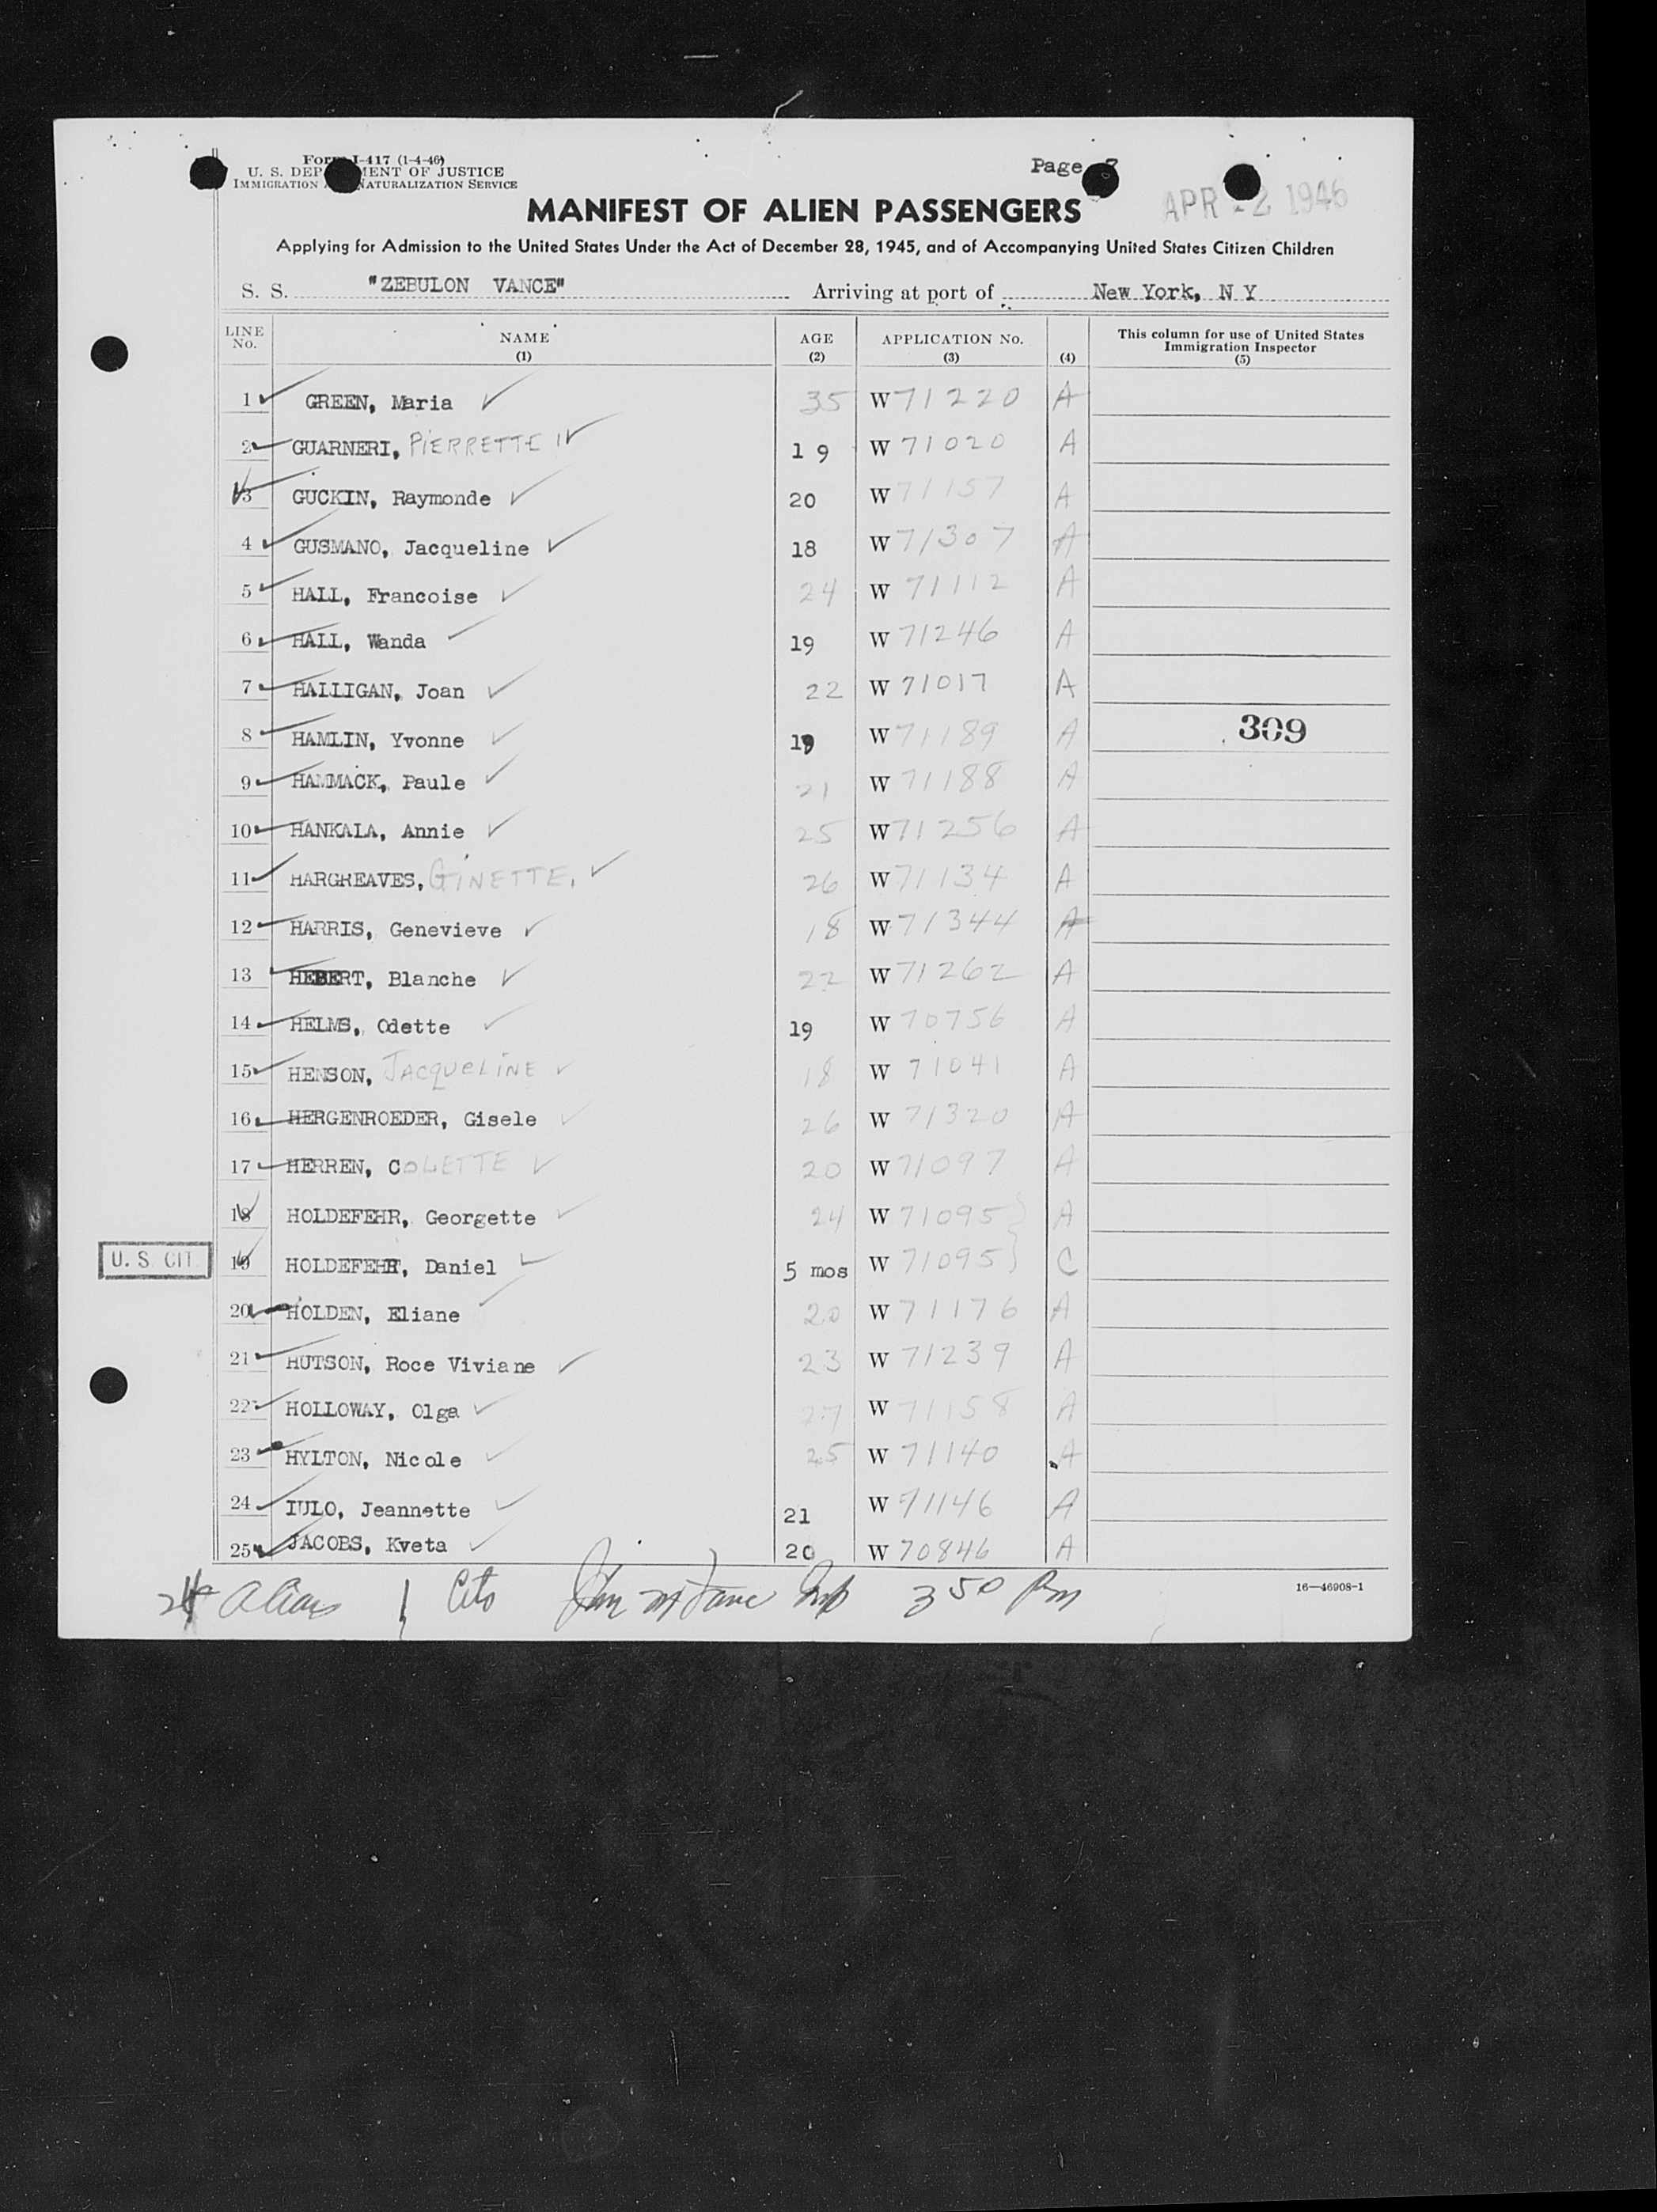 Form I-417 (1-4-46)
U. S. DEPARTMENT OF JUSTICE
IMMIGRATION NATURALIZATION SERVICE
Page
APR - 2 1946
MANIFEST OF ALIEN PASSENGERS
Applying for Admission to the United States Under the Act of December 28, 1945, and of Accompanying United States Citizen Children
S. S. "ZEBULON VANCE" Arriving at port of New York, N Y
LINE No. NAME (1) AGE (2) APPLICATION No. (3) (4) This column for use of United States Immigration Inspector (5)
1 GREEN, Maria 35 W 71220 A
2 GUARNERI, PIERRETTE 19 W 71020 A
3 GUCKIN, Raymonde 20 W 71157 A
4 GUSMANO, Jacqueline 18 W 71307 A
5 HALL, Francoise 24 W 71112 A
6 HALL, Wanda 19 W 71246 A
7 HALLIGAN, Joan 22 W 71017 A
8 HAMLIN, Yvonne 19 W 71189 A 309
9 HAMMACK, Paule 21 W 71188 A
10 HANKALA, Annie 25 W 71256 A
11 HARGREAVES, GINETTE, 26 W 71134 A
12 HARRIS, Genevieve 18 W 71344 A
13 HEBERT, Blanche 22 W 71262 A
14 HELMS, Odette 19 W 70756 A
15 HENSON, JACQUELINE 18 W 71041 A
16 HERGENROEDER, Gisele 26 W 71320 A
17 HERREN, COLETTE 20 W 71097 A
18 HOLDEFEHR, Georgette 24 W 71095 A
U. S. CIT 19 HOLDEFEHR, Daniel 5 mos W 71095 C
20 HOLDEN, Eliane 20 W 71176 A
21 HUTSON, Roce Viviane 23 W 71239 A
22 HOLLOWAY, Olga 27 W 71158 A
23 HYLTON, Nicole 25 W 71140 A
24 IULO, Jeannette 21 W 71146 A
25 JACOBS, Kveta 20 W 70846 A
24 aliens 1 Cits Insp 3 50 Pm
16—46908-1